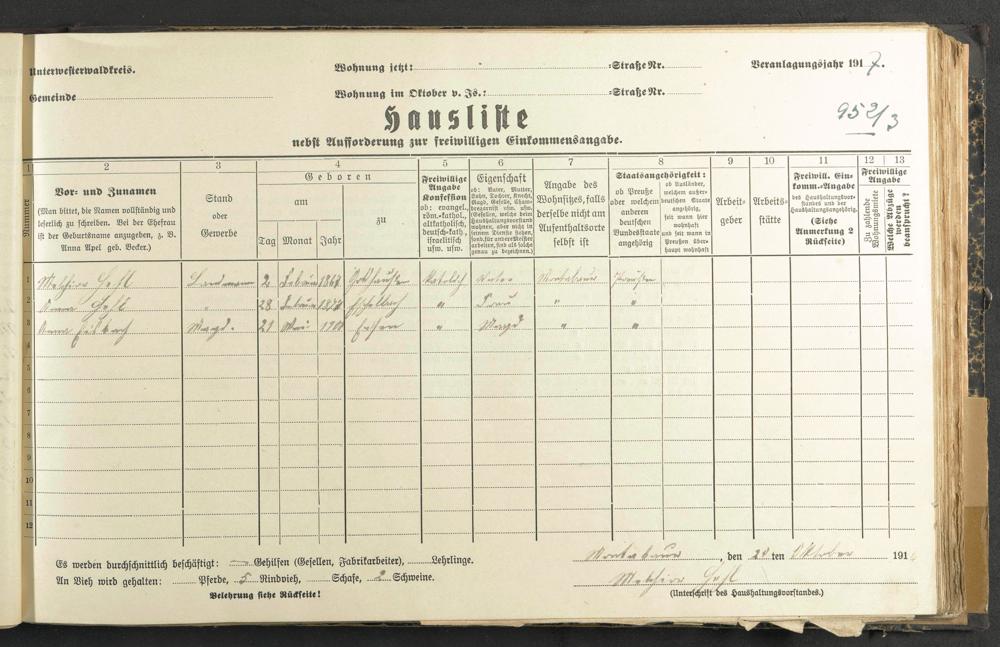 Unterwesterwaldkreis.
Wohnung jetzt: Straße Nr.
Veranlagungsjahr 1917.
Gemeinde
Wohnung im Oktober v. Js.: Straße Nr.
952/3
Hausliste
nebst Aufforderung zur freiwilligen Einkommensangabe.
1 2 3 4 5 6 7 8 9 10 11 12 13
Nummer
Vor- und Zunamen
(Man bittet, die Namen vollständig und
leserlich zu schreiben. Bei der Ehefrau
ist der Geburtsname anzugeben, z. B.
Anna Apel geb. Becker.)
Stand
oder
Gewerbe
Geboren
am
zu
Tag Monat Jahr
Freiwillige
Angabe
Konfession
ob: evangel.,
röm.-kathol.,
altkatholisch,
deutsch-kath.,
israelitisch
usw. usw.
Eigenschaft
ob: Vater, Mutter,
Sohn, Tochter, Knecht,
Magd, Geselle, Cham-
bregarnist usw. usw.
(Gesellen, welche beim
Haushaltungsvorstand
wohnen, aber nicht in
seinem Dienste stehen,
sond. für andere Meister
arbeiten, sind als solche
genau zu bezeichnen.)
Angabe des
Wohnsitzes, falls
derselbe nicht am
Aufenthaltsorte
selbst ist
Staatsangehörigkeit:
ob Preuße
oder welchem
anderen
deutschen
Bundesstaate
angehörig
ob Ausländer,
welchem außer-
deutschen Staate
angehörig,
seit wann hier
wohnhaft
und seit wann in
Preußen über-
haupt wohnhaft
Arbeit-
geber
Arbeits-
stätte
Freiwill. Ein-
komm.-Angabe
des Haushaltungsvor-
standes und der
Haushaltungsangehörig.
(Siehe
Anmerkung 2
Rückseite)
Freiwillige
Angabe
Zu zahlende
Wohnungsmiete
Welche Abzüge
werden
beansprucht?
1 Melchior Landmann 2 Februar Katholisch Vater Montabaur Preußen
2 Anna " 28 Februar " Frau " "
3 Anna Magd. 21 Mai " Magd " "
4
5
6
7
8
9
10
11
12
Es werden durchschnittlich beschäftigt: — Gehilfen (Gesellen, Fabrikarbeiter), Lehrlinge.
Montabaur, den 20 ten Oktober 191
An Vieh wird gehalten: Pferde, 5 Rindvieh, Schafe, 2 Schweine.
Melchior
Belehrung siehe Rückseite!
(Unterschrift des Haushaltungsvorstandes.)